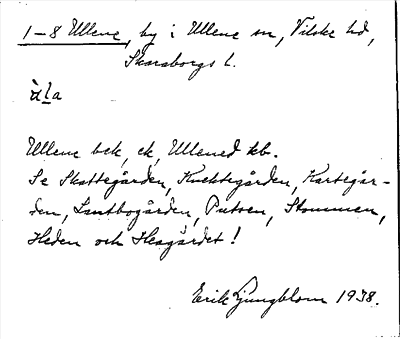 1-8 Ullene, by i Ullene sn, Vilske hd,
Skaraborgs l.
ùla
Ullene bek, ek, Ullened kb.
Se Skattegården, Knektegården, Kartegår-
den, Lantbogården, Putsen, Stommen,
Heden och Hesgärdet!
Erik Ljungblom 1938.